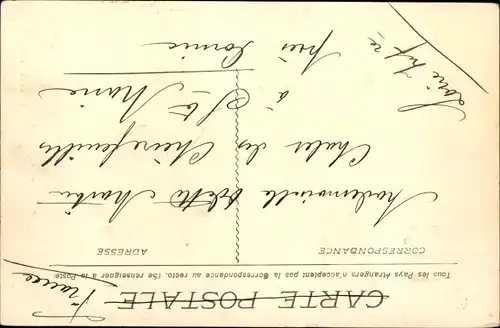 CARTE POSTALE
Tous les Pays étrangers n'acceptent pas la Correspondance au recto. (Se renseigner à la Poste)
CORRESPONDANCE
ADRESSE
Mademoiselle Odette Martin
Chalet des Chèvrefeuilles
à Ste Marie
près Pornic
Loire Infre
France